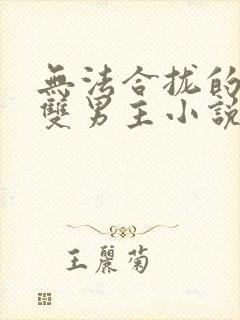 無法合拢的
雙男主小説
王麗菊